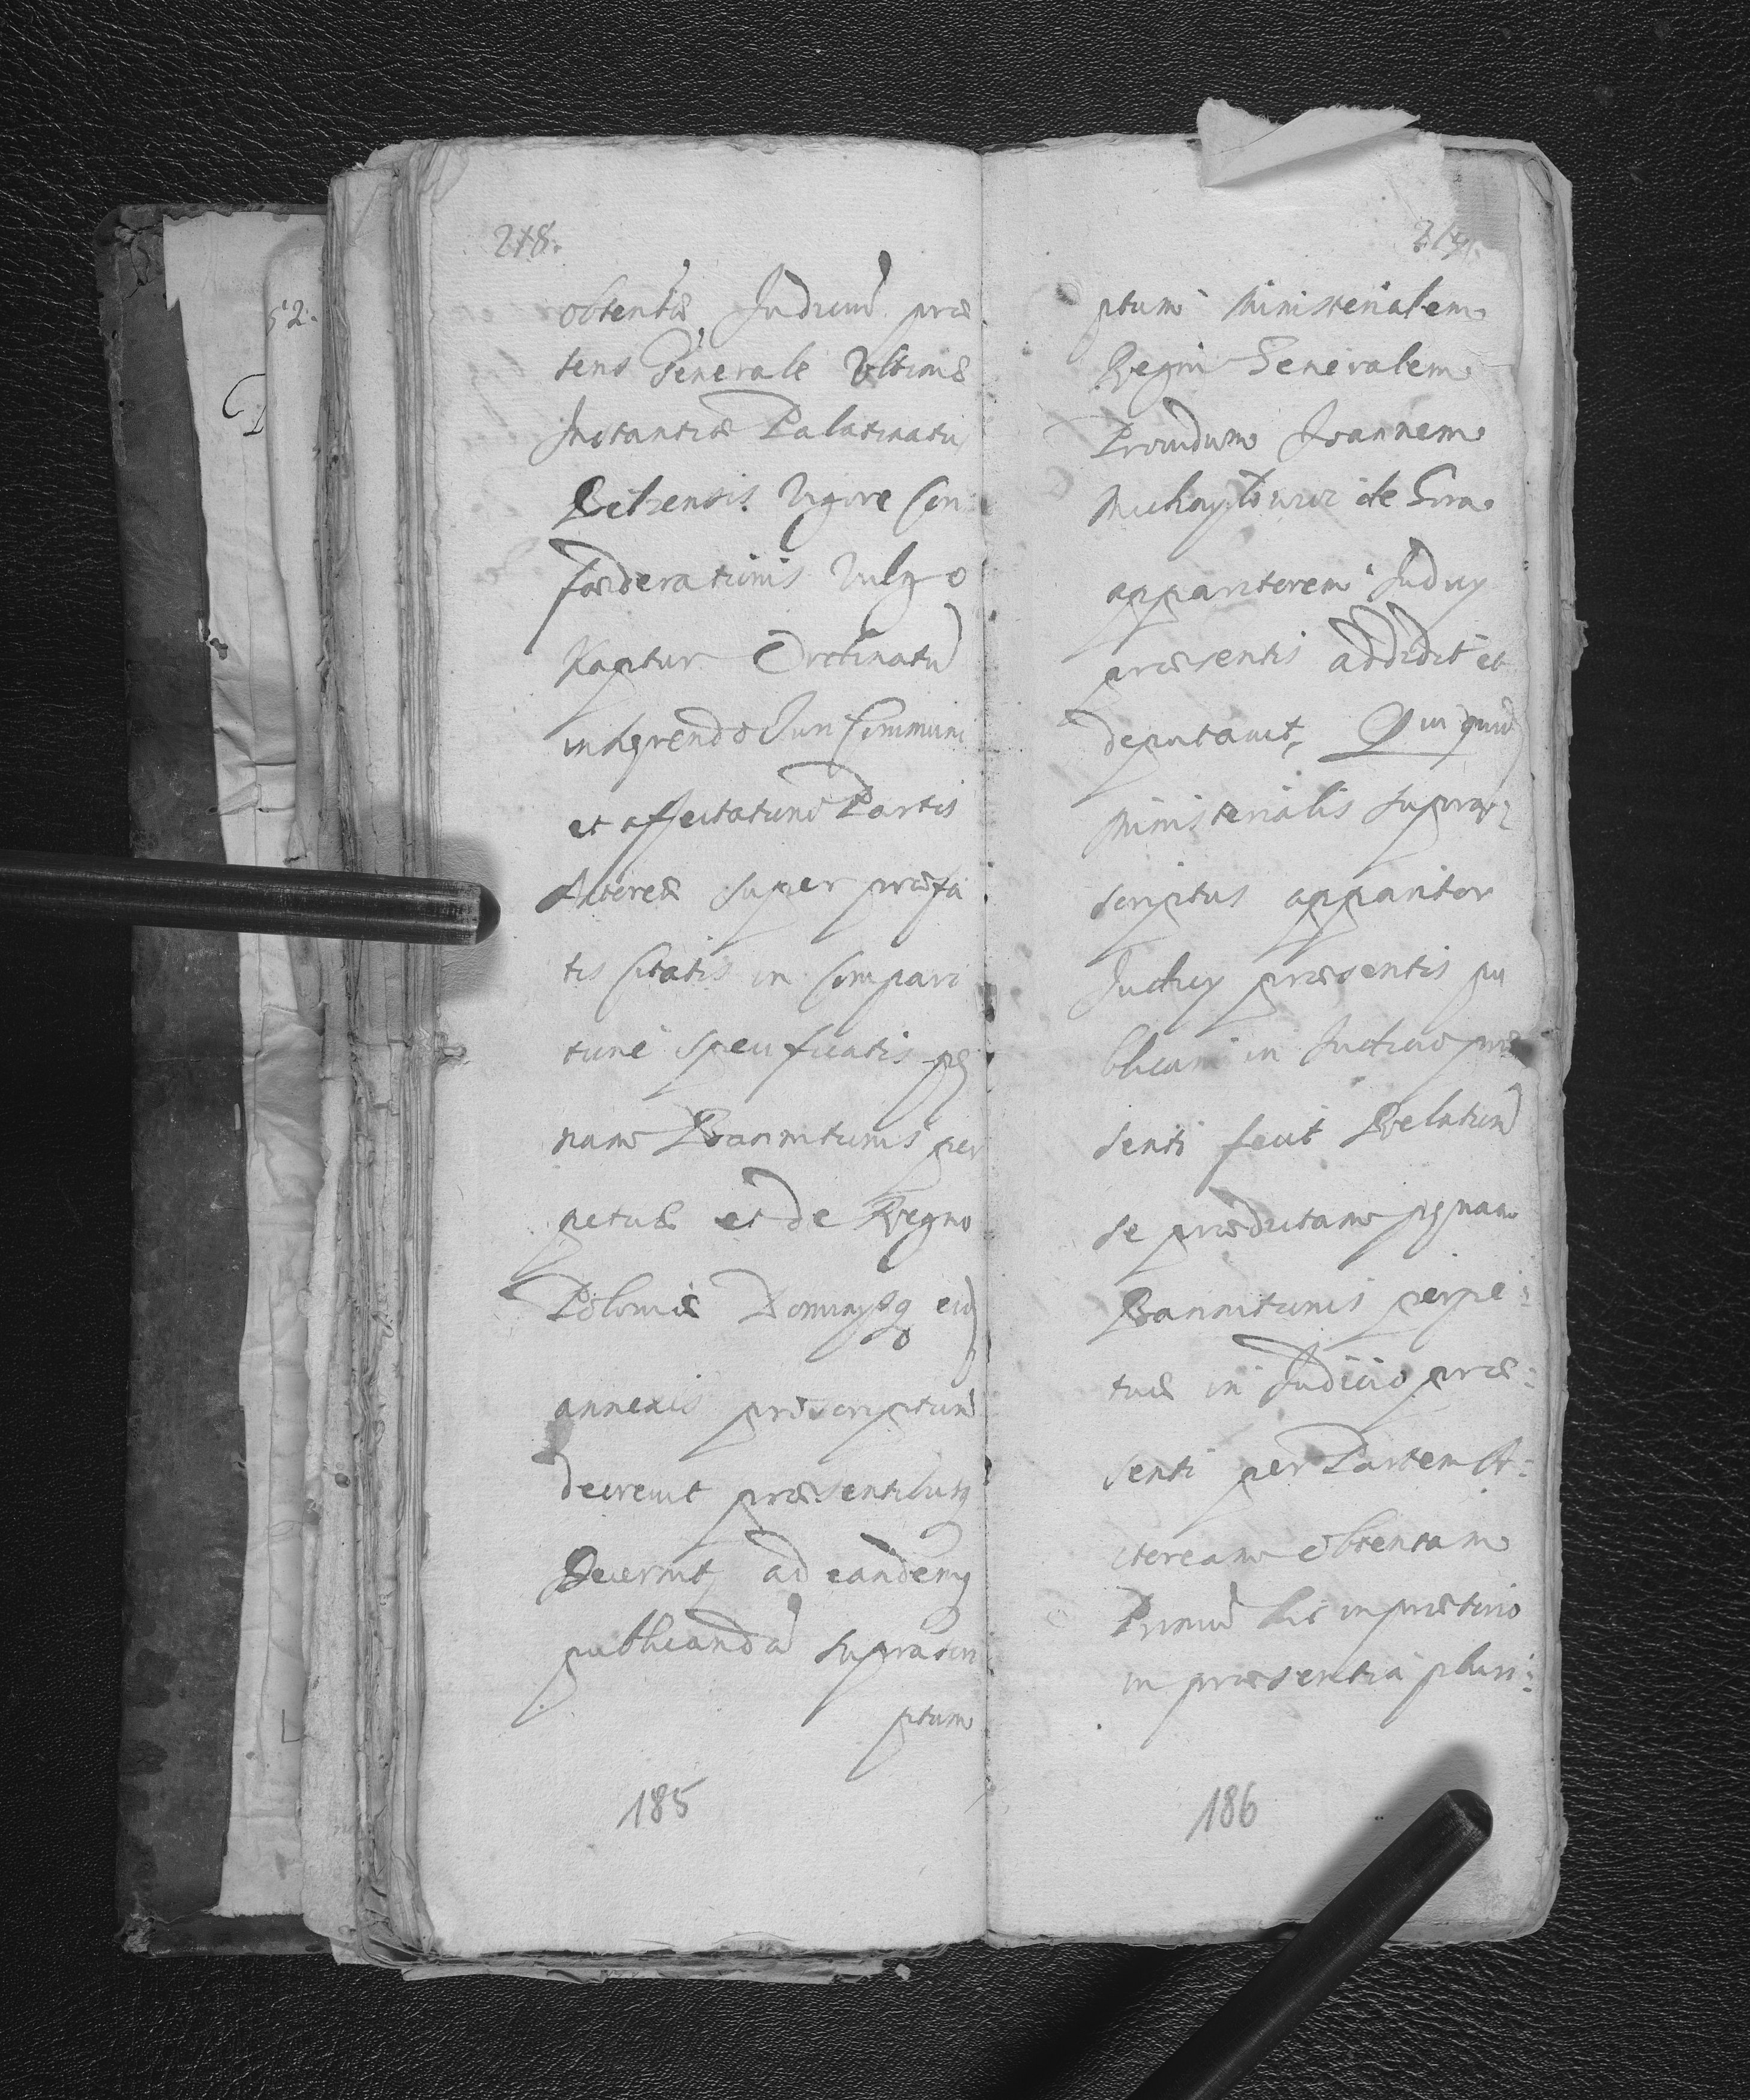 218.
obtentæ, Judiciũ præ
sens Generale Ultimæ
Instantiæ Palatinatus
Belzensis Vigore Con
fœderationis Vulgo
Kaptur Ordinatũ
inhærendo Juri Communi
et affectationi Partis
Actoreæ super præfa
tis Citatis in Compari
tione specificatis pœ
nam Bannitionis per
petuæ et de Regno
Poloniæ Dominysq̃ eiꝰ
annexis proscriptionẽ
decrevit præsentibusq̃
Decernit, ad eandemq̃
publicandã suprascri
ptum
185
219.
ptum Ministerialem
Regni Generalem
Providum Joannem
Michayłowicz de Gora
apparitorem Judicy
præsentis addidit et
deputavit, Qui quidẽ
Ministerialis supra
scriptus apparitor
Judicy præsentis pu
blicam in Judicio præ
senti fecit Relationẽ
se prædictam pœnam
Bannitionis perpe:
tuæ in Judicio præ:
senti per Partem A:
ctoream obtentam
Primũ hic in prætorio
in præsentia pluri:
186
52.